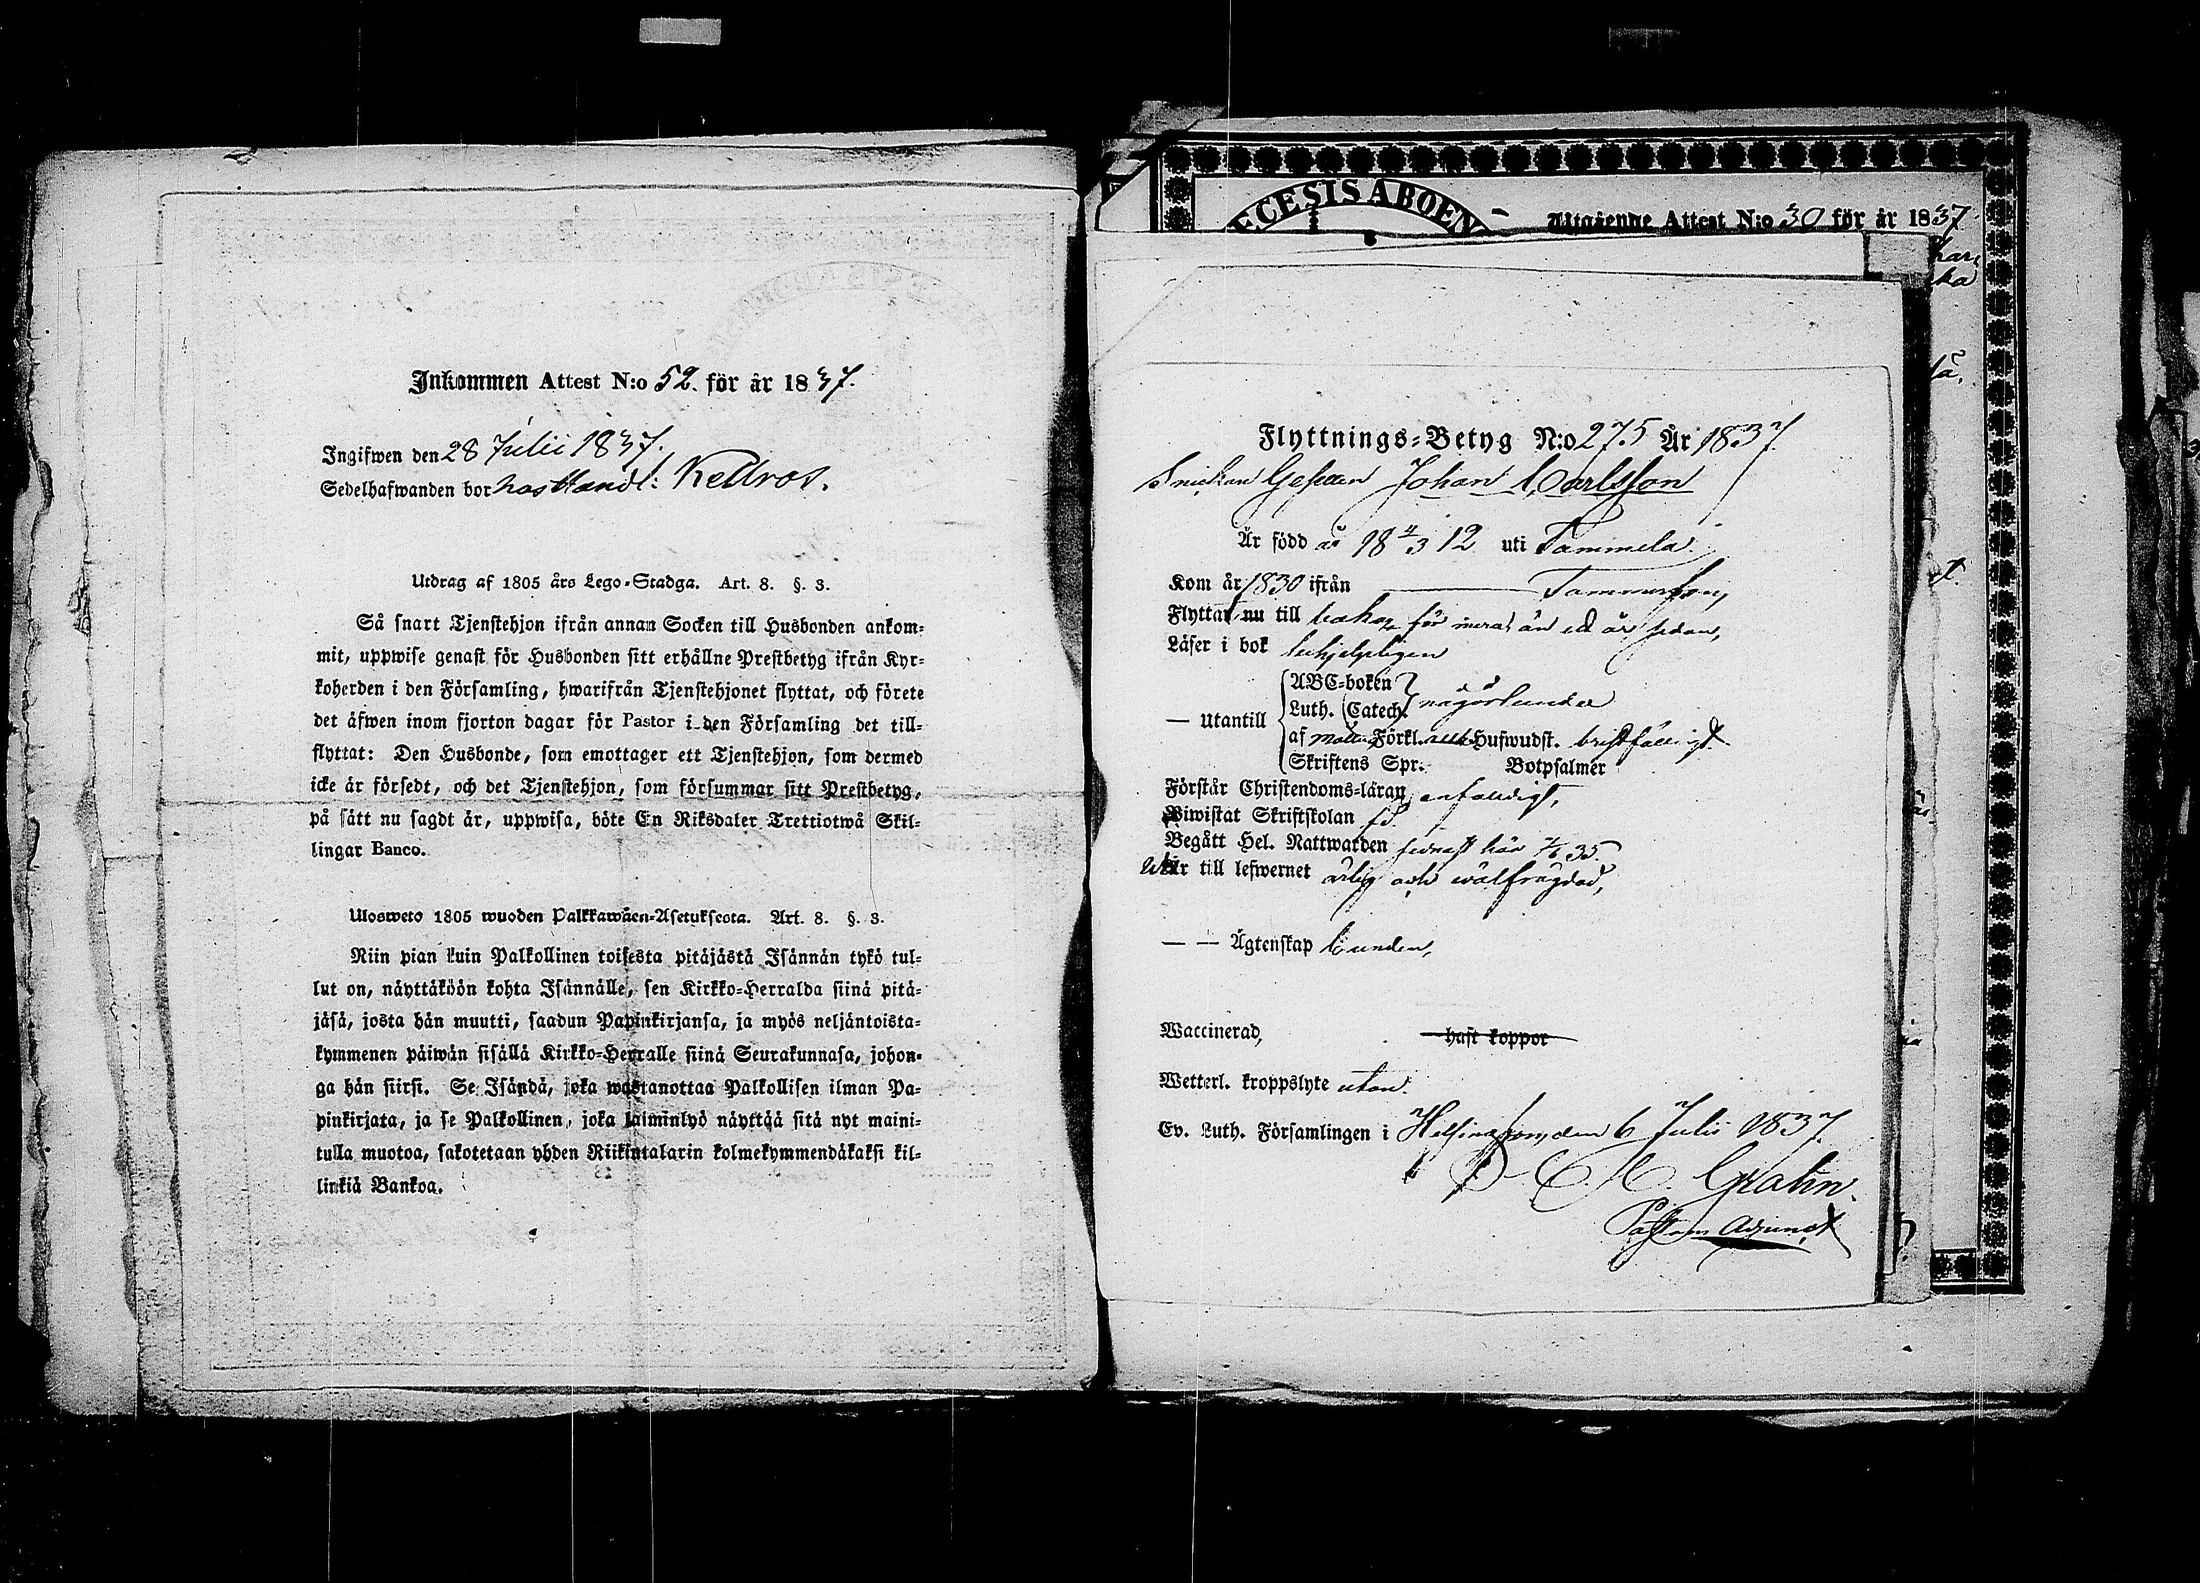 Inkommen Attest N:o 52. för år 1837.
Ingifwen den 28 Julii 1837.
Sedelhafwanden bor hos Handl: Kellros.
Utdrag af 1805 års Lego-Stadga. Art. 8. §. 3.
Så snart Tjenstehjon ifrån annan Socken till Husbonden ankom-
mit, uppwise genast för Husbonden sitt erhållne Prestbetyg ifrån Kyr-
koherden i den Församling, hwarifrån Tjenstehjonet flyttat, och förete
det äfwen inom fjorton dagar för Pastor i den Församling det till-
flyttat: Den Husbonde, som emottager ett Tjenstehjon, som dermed
icke är försedt, och det Tjenstehjon, som försummar sitt Prestbetyg,
på sätt nu sagdt är, uppwisa, böte En Riksdaler Trettiotwå Skil-
lingar Banco.
Ulosweto 1805 wuoden Palkkawäen-Asetuksesta. Art. 8. §. 3.
Niin pian kuin Palkollinen toisesta pitäjästä Isännän tykö tul-
lut on, näyttäköön kohta Isännälle, sen Kirkko-Herralda siinä pitä-
jäsä, josta hän muutti, saadun Papinkirjansa, ja myös neljäntoista-
kymmenen päiwän sisällä Kirkko-Herralle siinä Seurakunnasa, johon-
ga hän siirsi. Se Isändä, joka wastanottaa Palkollisen ilman Pa-
pinkirjata, ja se Palkollinen, joka laiminlyö näyttää sitä nyt maini-
tulla muotoa, sakotetaan yhden Riikintalarin kolmekymmendäkaksi kil-
linkiä Bankoa.
ECESIS ABOEN
Utgående Attest N:o 30 för år 1837.
Flyttnings-Betyg N:o 275 År 1837.
Snickare Gesällen Johan Carlsson
Är född år 18 4/3 12 uti Tammela.
Kom år 1830 ifrån Tammerfors,
Flyttat nu till för mera än ett år sedan,
Läser i bok behjelpligen
— Utantill
ABC-boken
Luth. Catech. någorlunda
af Förkl. Hufwudst. bristfälligt.
Skriftens Spr. Botpsalmer
Förstår Christendoms-läran enfaldigt,
Biwistat Skriftskolan
Begått Hel. Nattwarden senast här 7/6 35.
Är till lefwernet ärlig och wälfrägdad,
— — Ägtenskap obunden,
Waccinerad, haft koppor
Wetterl. kroppslyte utan.
Ev. Luth. Församlingen i Helsingfors, den 6 Julii 1837.
Grahn.
Pastors Adjunct